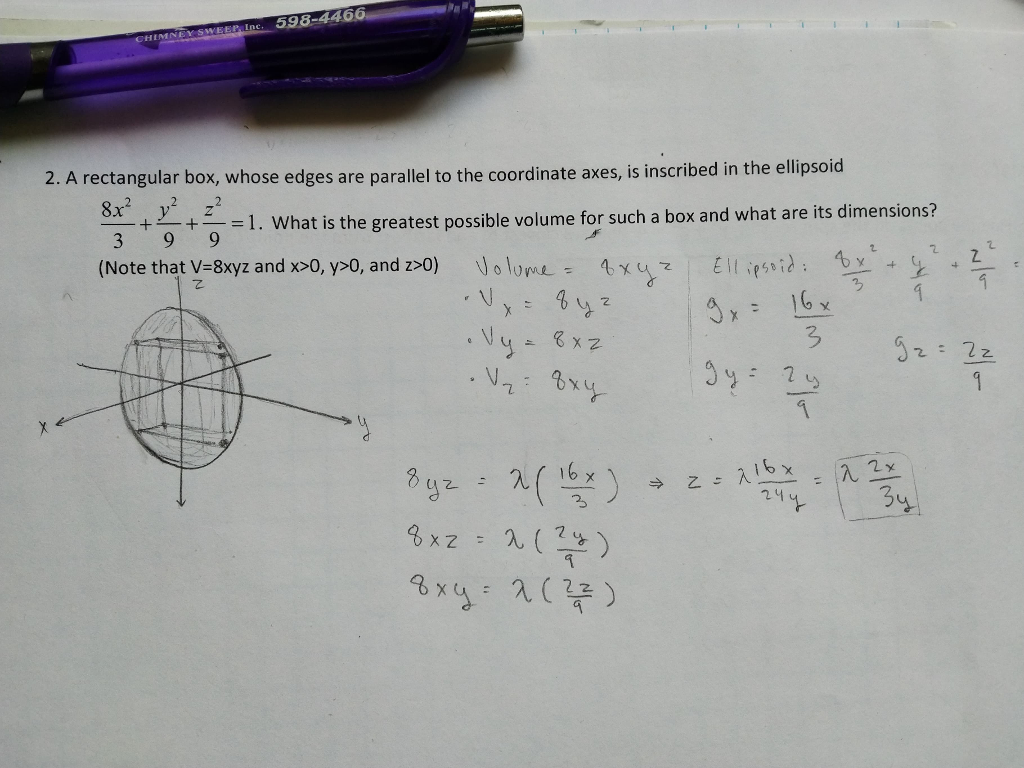 CHIMNEY SWEEP, Inc. 598-4466
2. A rectangular box, whose edges are parallel to the coordinate axes, is inscribed in the ellipsoid
8x²/3 + y²/9 + z²/9 = 1. What is the greatest possible volume for such a box and what are its dimensions?
(Note that V=8xyz and x>0, y>0, and z>0)
Volume = 8xyz
· Vx = 8yz
· Vy = 8xz
· Vz = 8xy
Ellipsoid: 8x²/3 + y²/9 + z²/9 =
gx = 16x/3
gy = 2y/9
gz = 2z/9
z
x
y
8yz = λ(16x/3) ⇒ z = λ16x/24y = λ 2x/3y
8xz = λ(2y/9)
8xy = λ(2z/9)